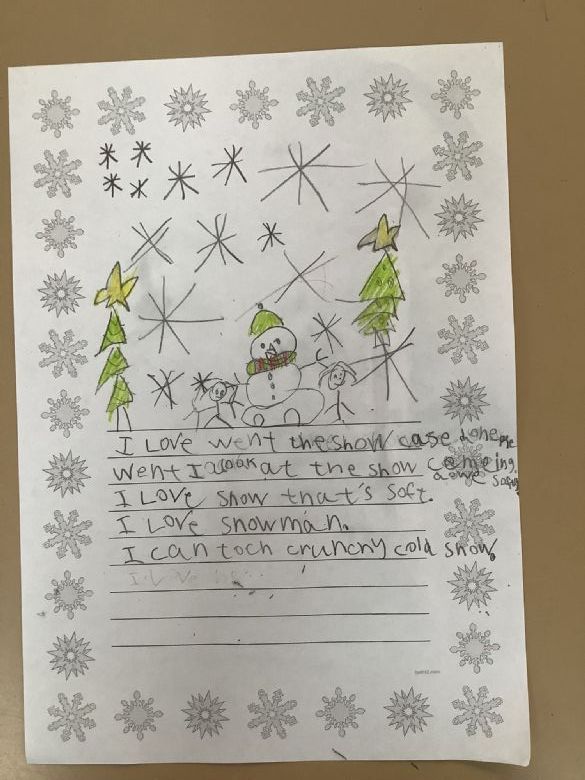 I Love went the show case
went I look at the show comeing.
I LOVE snow that's soft.
I Love snowman.
I can toch crunchy cold snow.
I Love